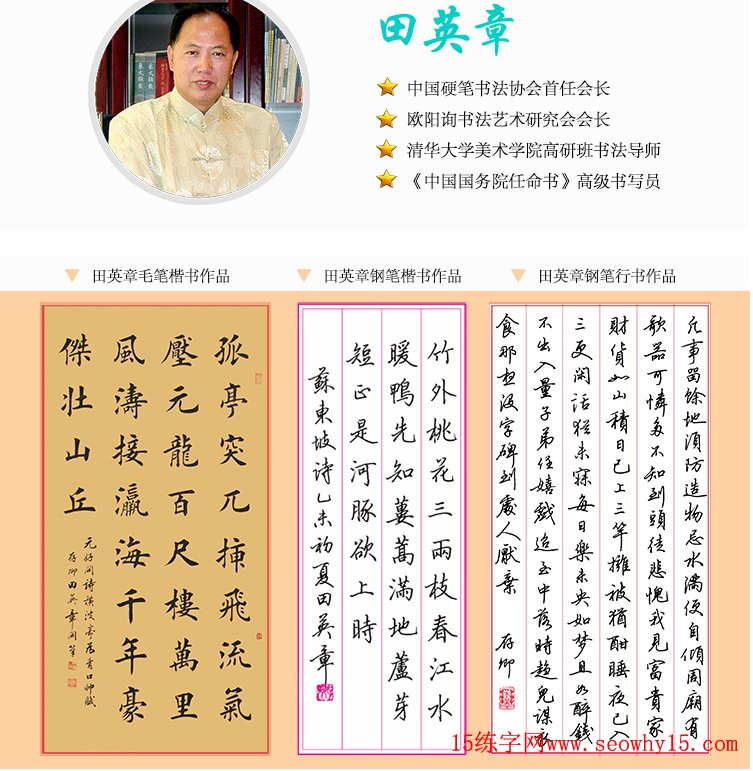 田英章
中国硬笔书法协会首任会长
欧阳询书法艺术研究会会长
清华大学美术学院高研班书法导师
《中国国务院任命书》高级书写员
田英章毛笔楷书作品
田英章钢笔楷书作品
田英章钢笔行书作品
孤亭突兀插飛流氣
壓元龍百尺樓萬里
風濤接瀛海千年豪
傑壮山丘
元好問詩橫波亭為青口帅賦
存卿田英章閑筆
竹外桃花三兩枝春江水
暖鴨先知蔞蒿滿地蘆芽
短正是河豚欲上時
蘇東坡诗乙未初夏田英章
凡事留餘地須防造物忌水滿便自傾周廟有
欹器可憐多不知到頭徒悲愧我見富貴家
財貨如山積日已上三竿擁被猶酣睡夜已入
三更閑話猶未寐每日樂未央如梦且如醉錢
不出入量子弟任嬉戲迨至中落時
食那字碑到處人厭棄
存卿
15练字网www.seowhy15.com